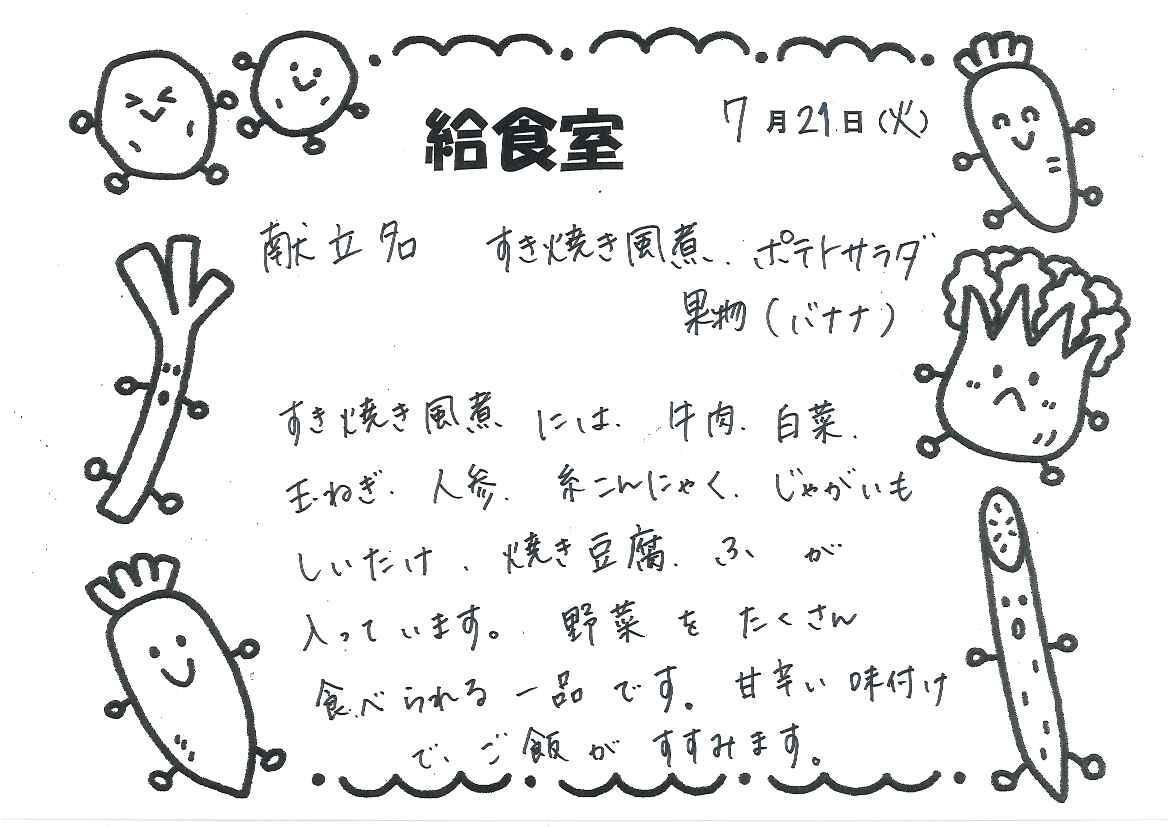 給食室
7月21日(火)
献立名 すき焼き風煮、ポテトサラダ
果物(バナナ)
すき焼き風煮には、牛肉、白菜、
玉ねぎ、人参、糸こんにゃく、じゃがいも
しいたけ、焼き豆腐、ふが
入っています。野菜をたくさん
食べられる一品です。甘辛い味付け
で、ご飯がすすみます。